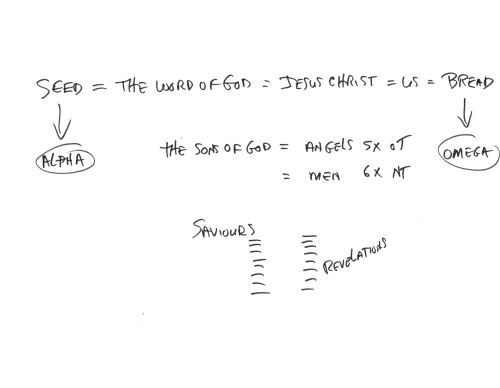 SEED = THE WORD OF GOD = JESUS CHRIST = US = BREAD
ALPHA
OMEGA
THE SONS OF GOD = ANGELS 5X OT
= MEN 6X NT
SAVIOURS
REVELATIONS